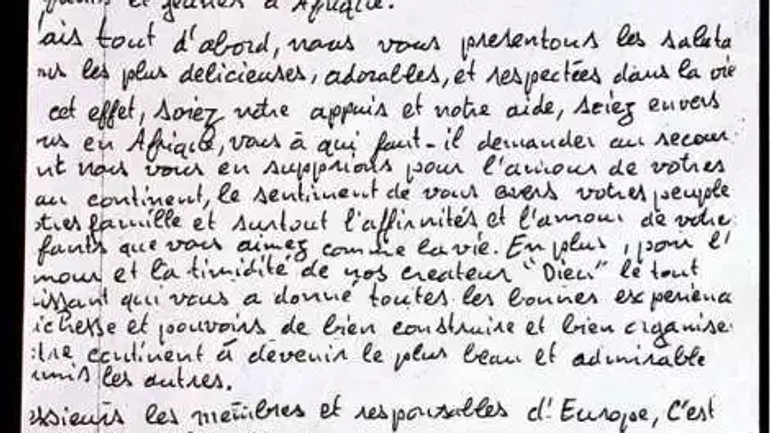 et jeunes d'Afrique.
ais tout d'abord, nous vous presentons les saluta
ns les plus délicieuses, adorables, et respectées dans la vie
cet effet, soiez nôtre appuis et notre aide, soiez envers
us en Afrique, vous à qui faut-il demander au secour
nt nous vous en supprions pour l'amour de votres
au continent, le sentiment de vous avers votres peuple
otres famille et surtout l'affinités et l'amour de votre
fants que vous aimez comme la vie. En plus, pour l'
mour et la timidité de nos createur "Dieu" le tout
issant qui vous a donné toutes les bonnes experiena
ichesse et pouvoirs de bien construire et bien organise
tre continent à devenir le plus beau et admirable
rmis les autres.
essieurs les membres et responsables d'Europe, C'est